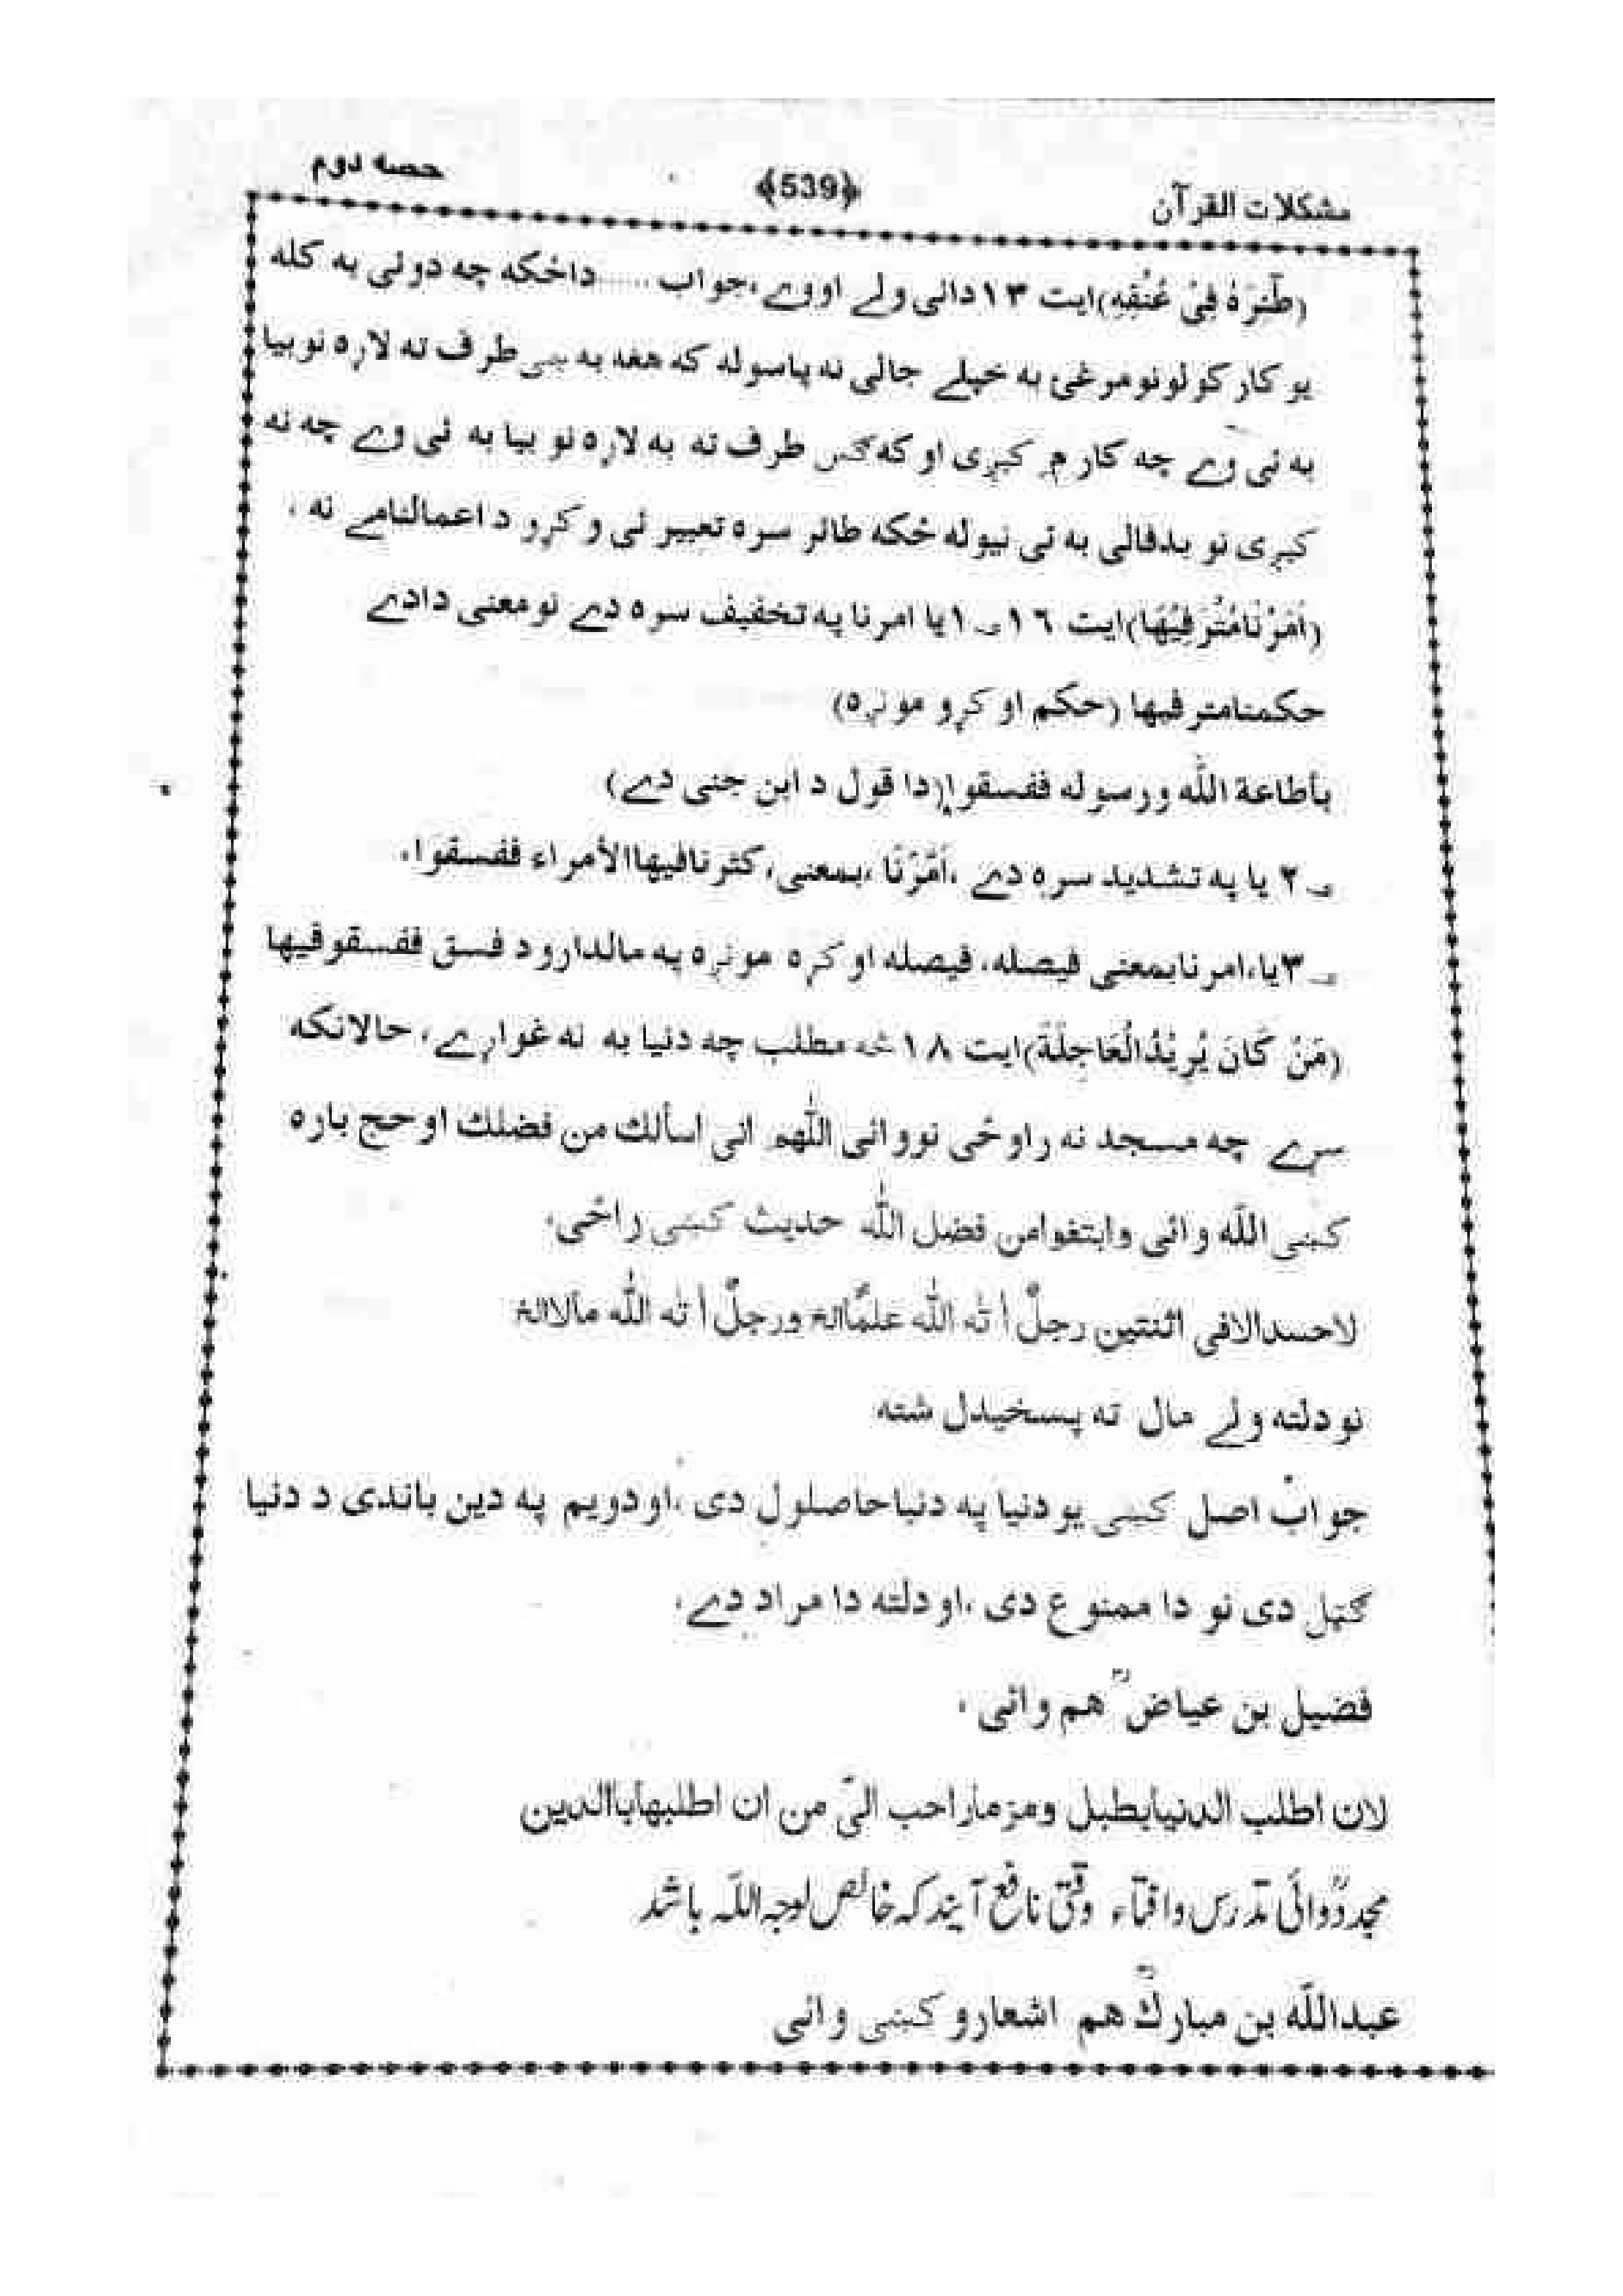 مشکلات القرآن ﴿539﴾ حصه دوم
(طٰٓئِرَهٗ فِیْ عُنُقِهٖ) ایت ١٣ دائی ولے اووے ،جواب ...... داځکه چه دوئی به کله
یو کار کولو نو مرغئ به خپلے جالی نه پاسوله که هغه به ښی طرف ته لاړه نو بیا
به ئی وے چه کار مِ کیږی او که ګس طرف ته به لاړه نو بیا به ئی وے چه نه
کیږی نو بدفالی به ئی نیوله ځکه طائر سره تعبیر ئی وکړو د اعمالنامے نه ،
(اَمَرْنَامُتْرَفِيْهَا) ایت ١٦ ــ١ یا امرنا په تخفیف سره دے نو معنی دا دے
حکمنامترفیها (حکم او کړو مونږه)
بأطاعة اللّٰه ورسوله ففسقوا (دا قول د ابن جنی دے)
ــ٢ یا په تشدید سره دے ،اَمَّرْنَا ،بمعنی، کثرنافیهاالأمراء ففسقوا،
ــ٣ یا،امرنابمعنی فیصله، فیصله او کړه مونږه په مالدارو د فسق ففسقوفیها
(مَنْ کَانَ یُرِیْدُالْعَاجِلَةَ) ایت ١٨ څه مطلب چه دنیا به نه غواړے، حالانکه
سړے چه مسجد نه راوځی نو وائی اللّٰهم انی اسألك من فضلك او حج باره
کښی اللّٰه وائی وابتغوامن فضل اللّٰه حدیث کښی راځی،
لاحسدالافی اثنتین رجلٌ أ تٰه اللّٰه علمًاالۃ ورجلٌ أ تٰه اللّٰه مألاالۃ
نو دلته ولے مال ته پسخیدل شته
جواب اصل کښی یو دنیا په دنیا حاصلول دی ،او دویم په دین باندی د دنیا
ګټل دی نو دا ممنوع دی ،او دلته دا مراد دے،
فضیل بن عیاضؒ هم وائی ،
لان اطلب الدنیأبطبل ومزمأراحب الیّ من ان اطلبهأباالدین
مجددؒ وائی تدرس وافتاء وقتی نافع آیند که خالص لوجه اللّٰه باشد
عبداللّٰه بن مبارکؒ هم اشعارو کښی وائی